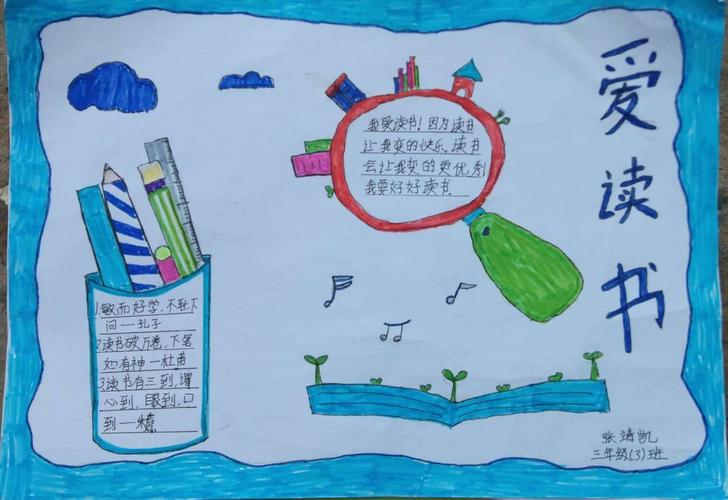 爱读书
我爱读书！因为读书
让我变的快乐、读书
会让我变的更优秀
我要好好读书.
1.敏而好学，不耻下
问一孔子
2读书破万卷，下笔
如有神一杜甫
3读书有三到，谓
心到，眼到，口
到一朱熹
张靖凯
三年级(3)班